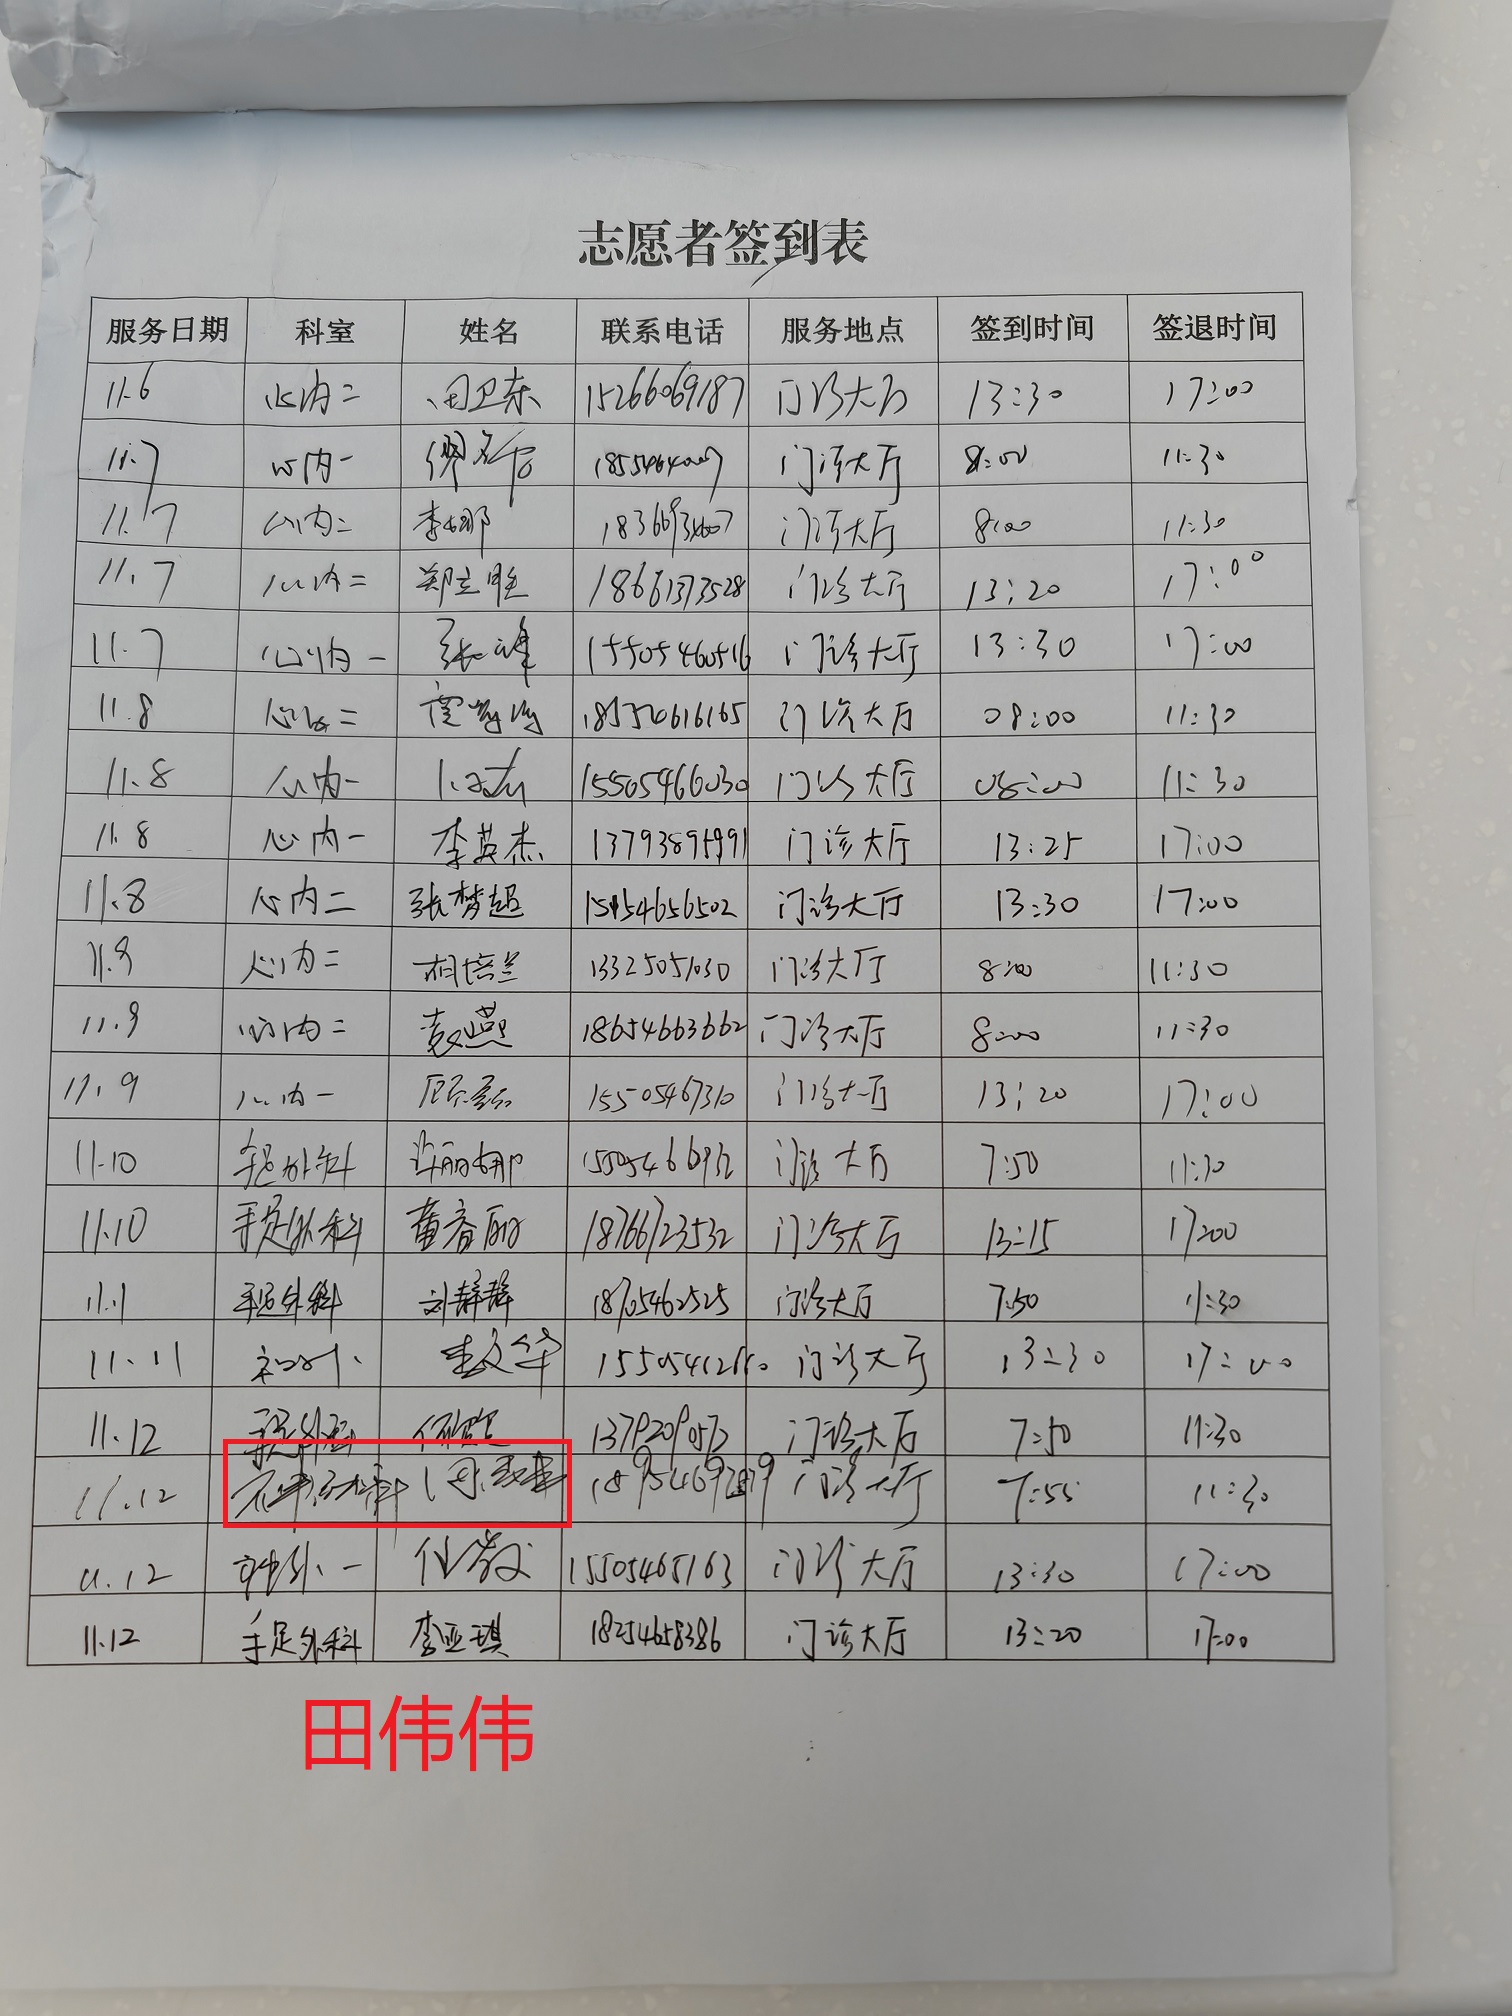 志愿者签到表
服务日期 科室 姓名 联系电话 服务地点 签到时间 签退时间
11.6 心内二 田卫东 15266069187 门诊大厅 13:30 17:00
11.7 心内一 门诊大厅 8:00 11:30
11.7 心内二 李娜 门诊大厅 8:00 11:30
11.7 心内二 郑立胜 18661373528 门诊大厅 13:20 17:00
11.7 心内一 张峰 15505460516 门诊大厅 13:30 17:00
11.8 心内二 门诊大厅 08:00 11:30
11.8 心内一 15505466030 门诊大厅 08:00 11:30
11.8 心内一 李英杰 门诊大厅 13:25 17:00
11.8 心内二 张梦超 15954656502 门诊大厅 13:30 17:00
11.9 心内二 相培兰 13325051030 门诊大厅 8:00 11:30
11.9 心内二 袁燕 18654663662 门诊大厅 8:00 11:30
11.9 心内一 15505467310 门诊大厅 13:20 17:00
11.10 手足外科 门诊大厅 7:50 11:30
11.10 手足外科 董春丽 18766723532 门诊大厅 13:15 17:00
11.11 手足外科 刘静静 18705462525 门诊大厅 7:50 11:30
11.11 门诊大厅 13:30 17:00
11.12 手足外科 门诊大厅 7:50 11:30
11.12 门诊大厅 7:55 11:30
11.12 15505465163 门诊大厅 13:30 17:00
11.12 手足外科 李亚琪 18254658386 门诊大厅 13:20 17:00
田伟伟